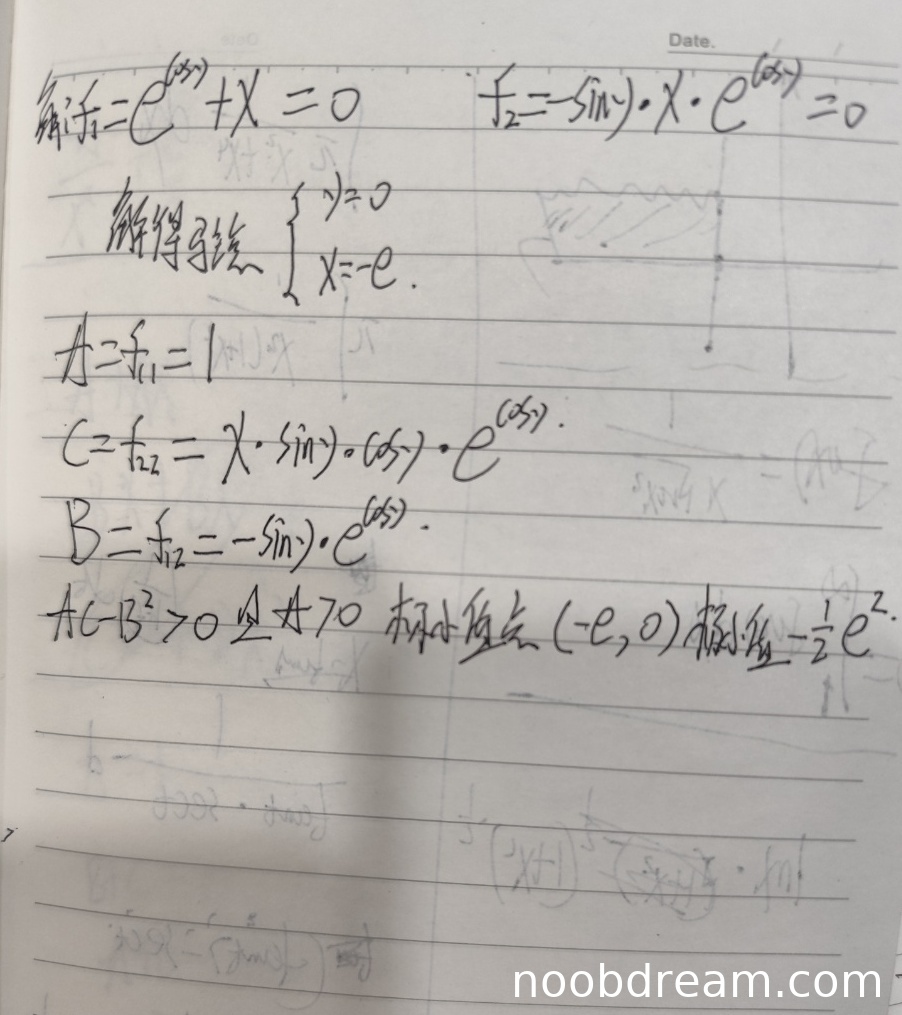 Date.
解：f₁=e^(cosy)+x=0 f₂=-siny·x·e^(cosy)=0
解得驻点 { y=0
x=-e.
A=f₁₁=1
C=f₂₂=x·siny·cosy·e^(cosy).
B=f₁₂=-siny·e^(cosy).
AC-B²>0且A>0 极小值点(-e,0)极小值-1/2e².
noobdream.com